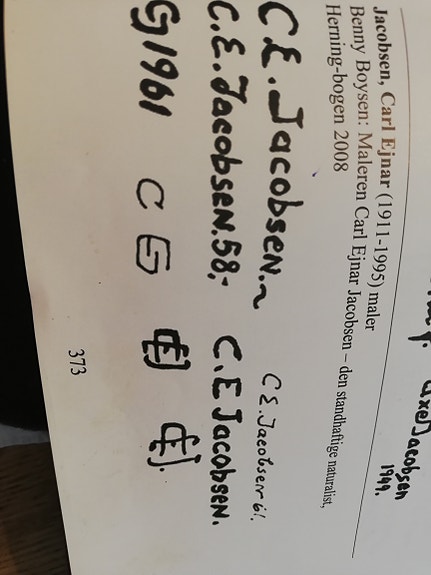 Axel Jacobsen
1949.
Jacobsen, Carl Ejnar (1911-1995) maler
Benny Boysen: Maleren Carl Ejnar Jacobsen – den standhaftige naturalist,
Herning-bogen 2008
C.E. Jacobsen.~
C.E. Jacobsen 61.
C.E. Jacobsen. 58.-
C.E Jacobsen.
1961
373